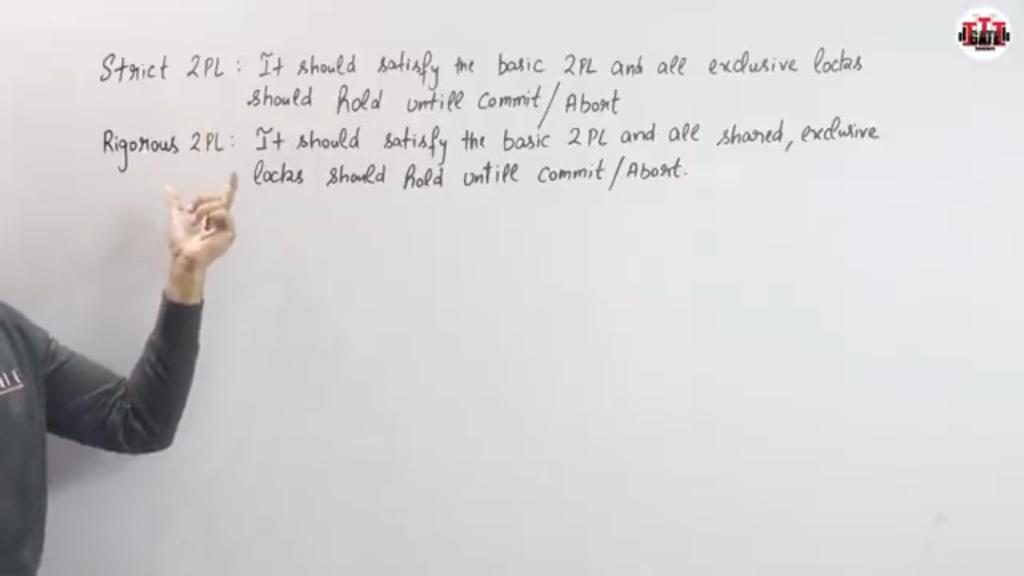 Strict 2PL : It should satisfy the basic 2PL and all exclusive locks
should hold untill Commit/Abort
Rigorous 2PL : It should satisfy the basic 2PL and all shared, exclusive
locks should hold untill Commit/Abort.
GATE